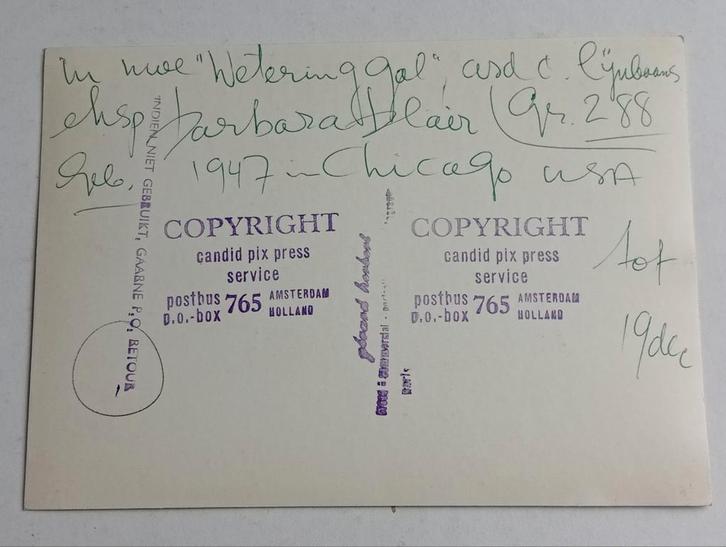 in nwe "Wetering gal", a/d c. Lijnbaans
eksp Barbara Blair (Gr. 288
Geb. 1947 in Chicago USA
tot
19 dec
INDIEN NIET GEBRUIKT, GAARNE P.O. RETOUR
COPYRIGHT
candid pix press
service
postbus 765 AMSTERDAM
p.o.-box HOLLAND
COPYRIGHT
candid pix press
service
postbus 765 AMSTERDAM
p.o.-box HOLLAND
paris